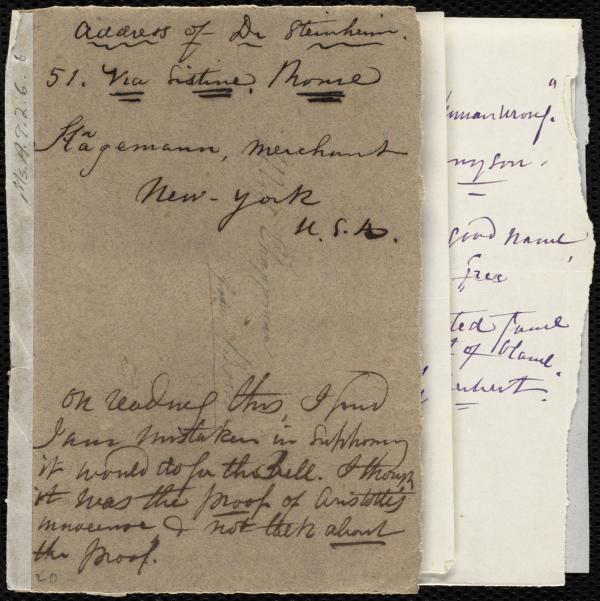 Address of Dr Steinheim.
51. Via Sistine. Rome
Stägemann, merchant
New-york
U.S.A.
On reading this, I find
I am mistaken in supposing
it would do for the Bell. I though
it was the proof of Aristotle's
innocence & not talk about
the proof.
20
Ms.A.9.2.6.6
uman wrong."
nyson.
good name
free
ted fame
of blame."
erbert.